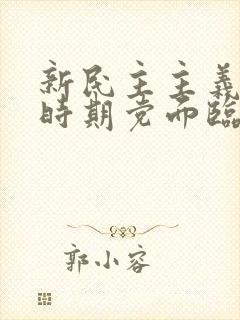 新民主主義
時期党面臨
郭小容